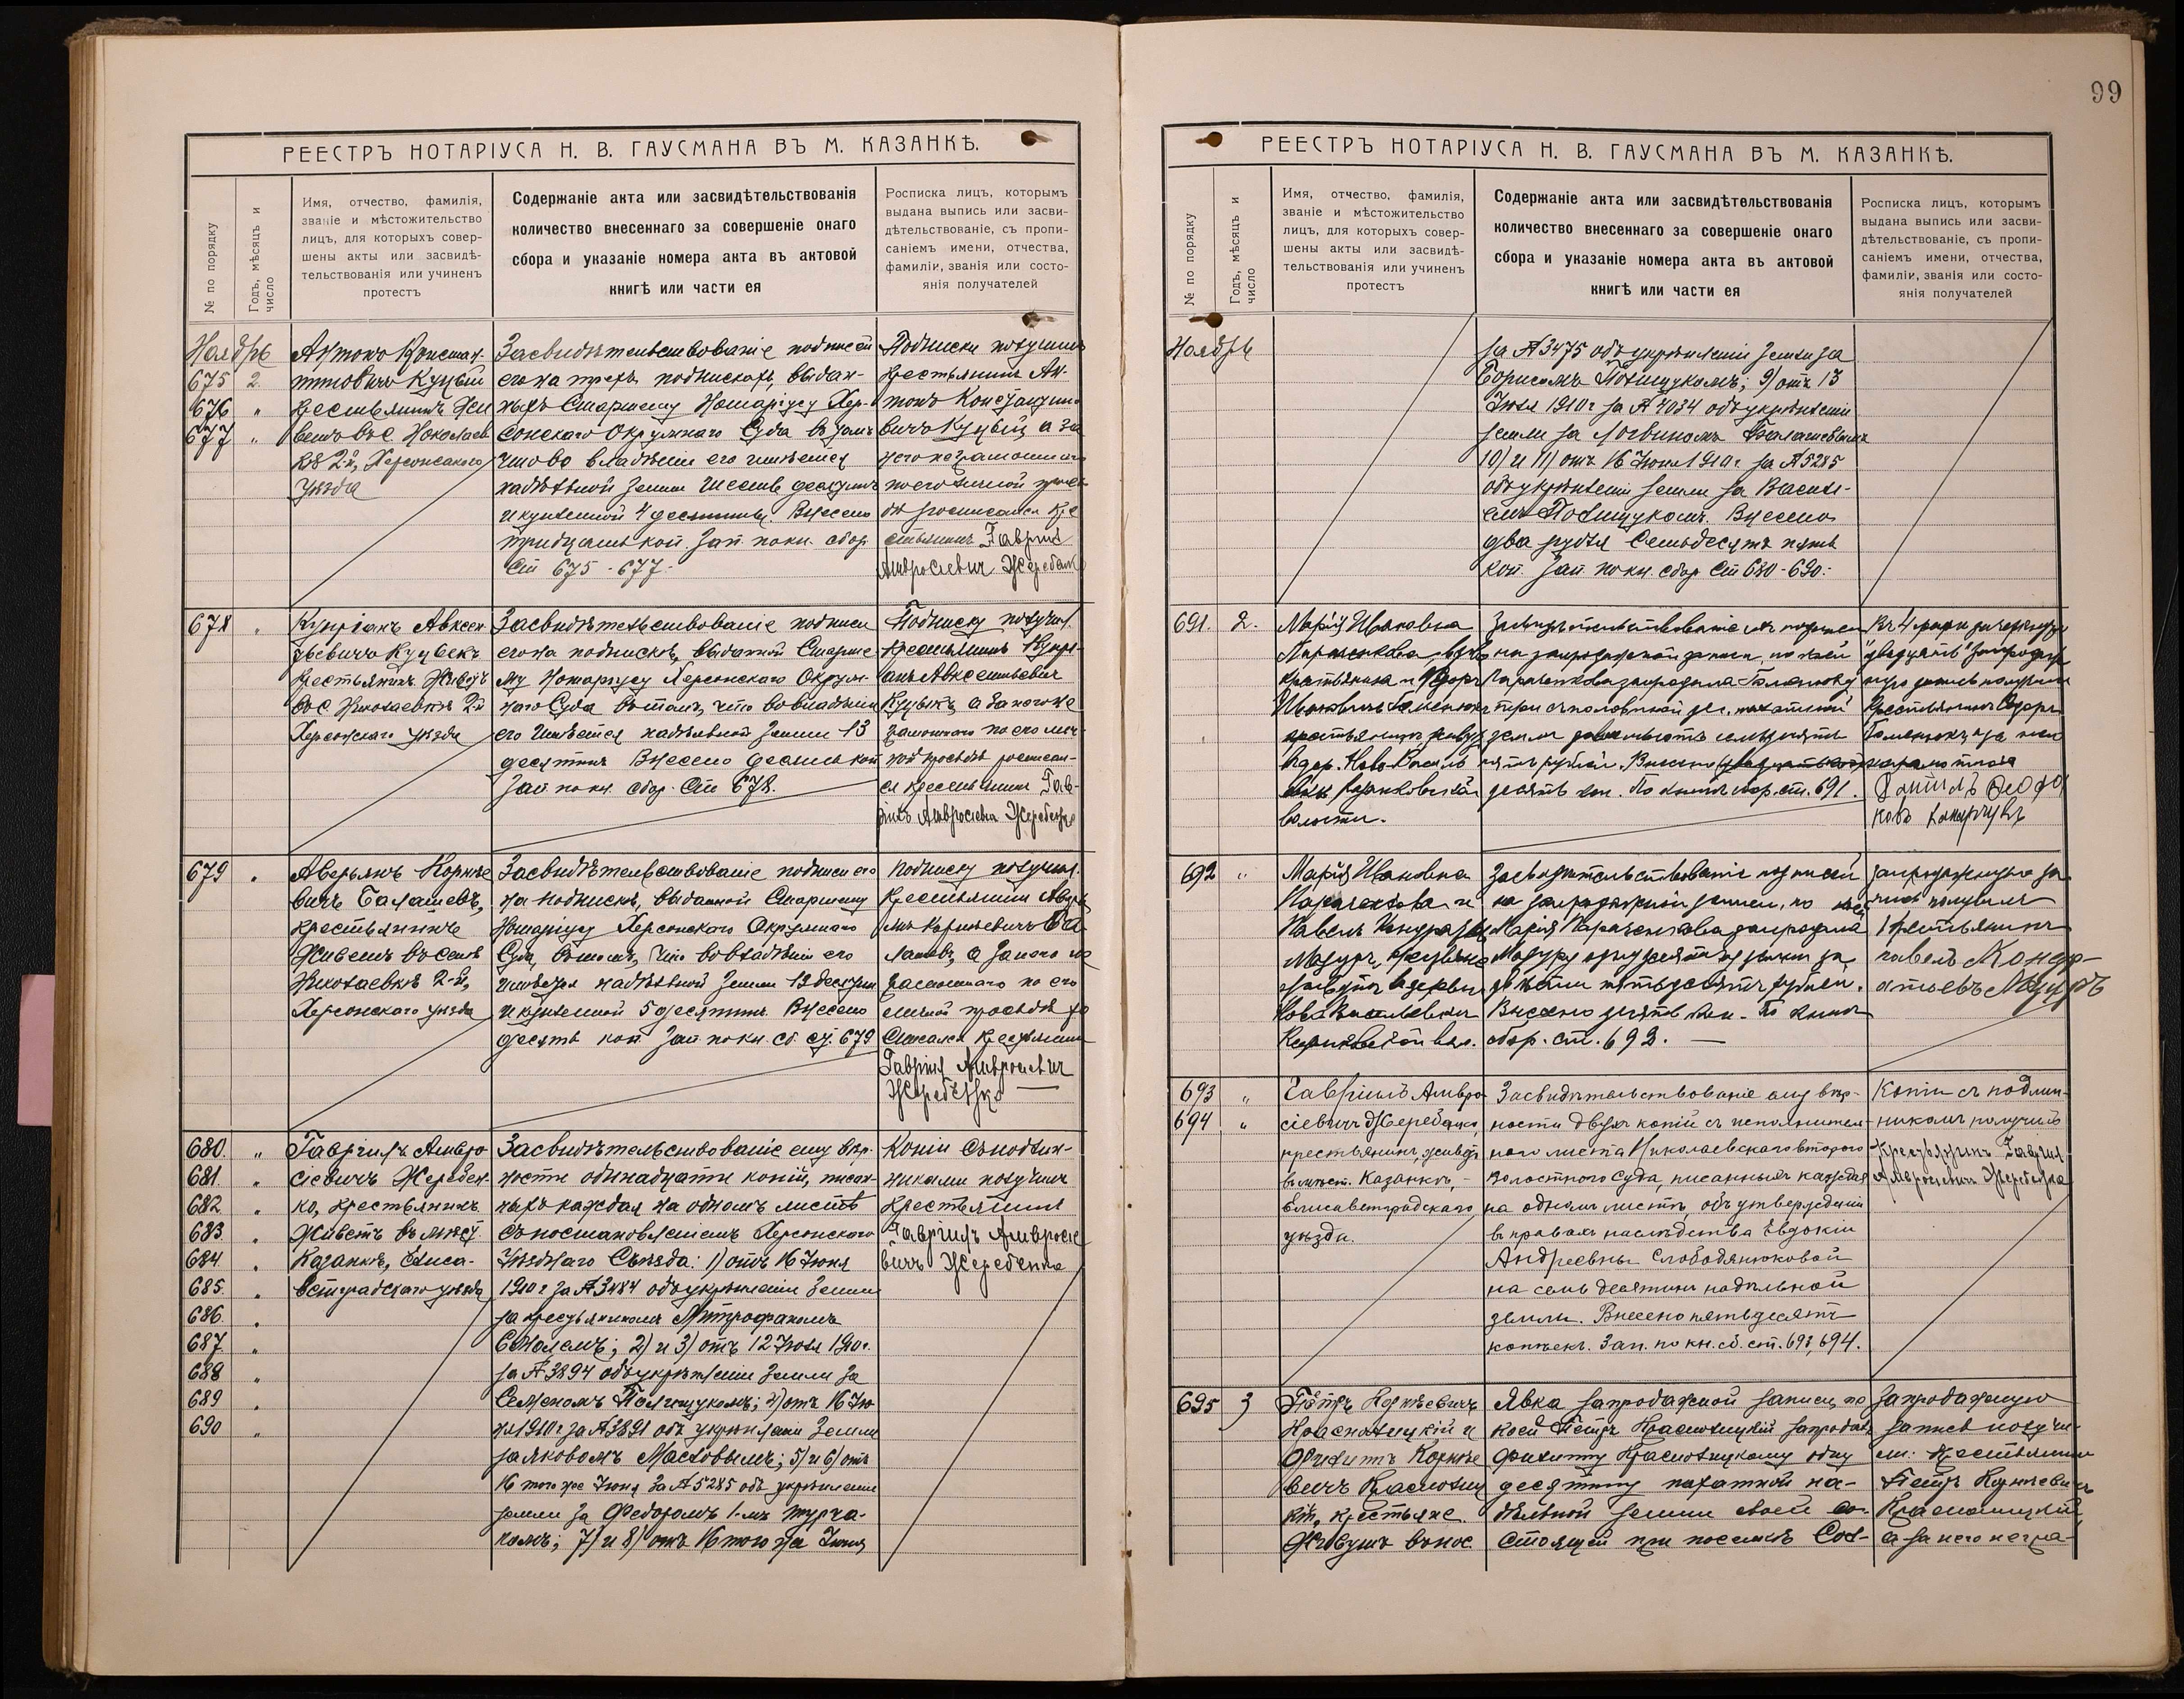 99
РЕЕСТРЪ НОТАРІУСА Н. В. ГАУСМАНА ВЪ М. КАЗАНКѢ.
№ по порядку
Годъ, мѣсяцъ и
число
Имя, отчество, фамилія,
званіе и мѣстожительство
лицъ, для которыхъ совер-
шены акты или засвидѣ-
тельствованія или учиненъ
протестъ
Содержаніе акта или засвидѣтельствованія
количество внесеннаго за совершеніе онаго
сбора и указаніе номера акта въ актовой
книгѣ или части ея
Росписка лицъ, которымъ
выдана выпись или засви-
дѣтельствованіе, съ пропи-
саніемъ имени, отчества,
фамиліи, званія или состо-
янія получателей
Ноябрь
675 2.
676 "
677 "
Антонъ Констан-
тиновичъ Куцый
Крестьянинъ Жи
ветъ въ с. Николаев
кѣ 2й, Херсонскаго
уѣзда
Засвидѣтельствованіе подписей
его на трехъ подпискахъ, выдан-
ныхъ Старшему Нотаріусу Хер-
сонскаго Окружнаго Суда въ томъ
что во владѣніи его имѣется
надѣльной земли шесть десятинъ
и купленной 4 десятины. Внесено
тридцать коп. Зап. по кн. сбор.
Ст 675 - 677.
Подписки получилъ
Крестьянинъ Ан-
тонъ Константино
вичъ Куцый, а за
него неграмотнаго
по его личной прось
бѣ росписался кре
стьянинъ Гаврiилъ
Амвросiевич Жеребенко
678 "
Купріанъ Авксен
тьевичъ Куцбекъ
Крестьянинъ Живетъ
въ с. Николаевкѣ 2й
Херсонскаго уѣзда
Засвидѣтельствованіе подписи
его на подпискѣ, выданной Старше-
му Нотаріусу Херсонскаго Окруж-
наго Суда въ томъ, что во владѣніи
его имѣется надѣльной земли 13
десятинъ Внесено десять коп
Зап по кн. сбор. Ст 678.
Подписку получилъ
крестьянинъ Купрі-
анъ Авксентьевич
а за него не
грамотнаго по его лич-
ной просьбѣ росписал-
ся крестьянин Гав-
рiилъ Амвросiевич Жеребенко
679 "
Аверьянъ Корнѣе
вичъ Балашевъ,
крестьянинъ
Живетъ въ селѣ
Николаевкѣ 2-й,
Херсонскаго уѣзда
Засвидѣтельствованіе подписи его
на подпискѣ, выданной Старшему
Нотаріусу Херсонскаго Окружнаго
Суда, въ томъ, что во владѣніи его
имѣется надѣльной земли 12 десятин
и купленной 5 десятинъ. Внесено
десять коп. Зап по кн. сб. ст. 679
Подписку получилъ
Крестьянинъ Аверь
янъ Корнѣевичъ Ба
лашевъ, а за него не
грамотнаго по его
личной просьбѣ ро
списался Крестьянин
Гаврiил Амвросiевич
Жеребенко
680. "
681 "
682 "
683. "
684. "
685. "
686. "
687. "
688 "
689 "
690 "
Гавріилъ Амвро
сіевичъ Жеребен-
ко, крестьянинъ.
Живетъ въ мѣст.
Казанкѣ, Елиса-
ветградскаго уѣзда
Засвидѣтельствованіе ему вѣр-
ности одинадцати копій, писан-
ныхъ каждая на одномъ листѣ
съ постановленіемъ Херсонскаго
Уѣзднаго Съѣзда: 1) отъ 16 Іюня
1910 г за № 3484 объ укрѣпленіи земли
за крестьяниномъ Митрофаномъ
2) и 3) отъ 12 Іюля 1910 г.
за № 3894 объ укрѣпленіи земли за
Семеномъ Полищукомъ; 4) отъ 16 Ію
ня 1910 г за № 3891 объ укрѣпленіи земли
за Яковомъ Мастовымъ; 5) и 6) отъ
16 того же Іюня за № 5285 объ укрѣпленіи
земли за Федоромъ 1-мъ Турча-
комъ; 7) и 8) отъ 16 того же Іюня
Копіи съ подлин-
никами получилъ
Крестьянинъ
Гавріилъ Амвросіе
вичъ Жеребенко
РЕЕСТРЪ НОТАРІУСА Н. В. ГАУСМАНА ВЪ М. КАЗАНКѢ.
№ по порядку
Годъ, мѣсяцъ и
число
Имя, отчество, фамилія,
званіе и мѣстожительство
лицъ, для которыхъ совер-
шены акты или засвидѣ-
тельствованія или учиненъ
протестъ
Содержаніе акта или засвидѣтельствованія
количество внесеннаго за совершеніе онаго
сбора и указаніе номера акта въ актовой
книгѣ или части ея
Росписка лицъ, которымъ
выдана выпись или засви-
дѣтельствованіе, съ пропи-
саніемъ имени, отчества,
фамиліи, званія или состо-
янія получателей
Ноябрь
за № 3475 объ укрѣпленіи земли за
Борисомъ Полищукомъ; 9) отъ 13
Іюля 1910 г за № 4034 объ укрѣпленіи
земли за Логвиномъ Балашевымъ
10) и 11) отъ 16 Іюня 1910 г. за № 5285
объ укрѣпленіи земли за Василі-
емъ Полищукомъ. Внесено
два рубля Семьдесятъ пять
коп. Зап. по кн. сбор Ст 680-690.
691. 2.
Марія Ивановна
Параскова, вдова
крестьянина и Федоръ
Ивановичъ
крестьянинъ живутъ
въ дер. Ново-Василь
Казанковской
волости.
Засвидѣтельствованіе подписей
на запродажной записи, по коей
запродала
три съ половиной дес. пахатной
земли
пять рублей. Внесено
десять коп. По книгѣ сбор. ст. 691.
запродаж
ную запись получилъ
Крестьянинъ Федоръ
а за него
неграмотнаго
692 "
Марія Ивановна
и
Павелъ
Мазуръ, крестьяне
живутъ въ деревнѣ
Ново Васильевкѣ
вол.
Засвидѣтельствованіе подписей
на запродажной записи, по коей
Марія запродала
Мазуру одну десятину земли за
пятьдесятъ рублей.
Внесено десять коп. По книгѣ
сбор. ст. 692.
Запродажную за
пись получилъ
Крестьянинъ
Павелъ Кондр-
атьевъ Мазуръ
693 "
694 "
Гавріилъ Амвро
сіевичъ Жеребенко,
крестьянинъ, живетъ
въ мѣст. Казанкѣ,
Елисаветградскаго
уѣзда.
Засвидѣтельствованіе ему вѣр-
ности двухъ копій съ исполнитель-
наго листа Николаевскаго второго
Волостного Суда, писанныхъ каждая
на одномъ листѣ, объ утвержденіи
въ правахъ наслѣдства Евдокіи
Андреевны Слободянюковой
на семь десятинъ надѣльной
земли. Внесено пятьдесятъ
копѣекъ. Зап. по кн. сб. ст. 693, 694.
Копіи съ подлин-
никомъ получилъ
Крестьянинъ Гаврiил
Амвросiевич Жеребенко
695 3
Петръ Корнѣевичъ
Краснолуцкій и
Филиппъ Корнѣе
вичъ Краснолуц
кій, крестьяне.
Живутъ въ пос
Явка запродажной записи, по
коей Петръ Краснолуцкій запродалъ
Филиппу Краснолуцкому одну
десятину пахатной на-
дѣльной земли своей со-
стоящей при поселкѣ Соф-
Запродажную
запись получи-
ли: Крестьянин
Петръ Корнѣевичъ
Краснолуцкій,
а за него негра-